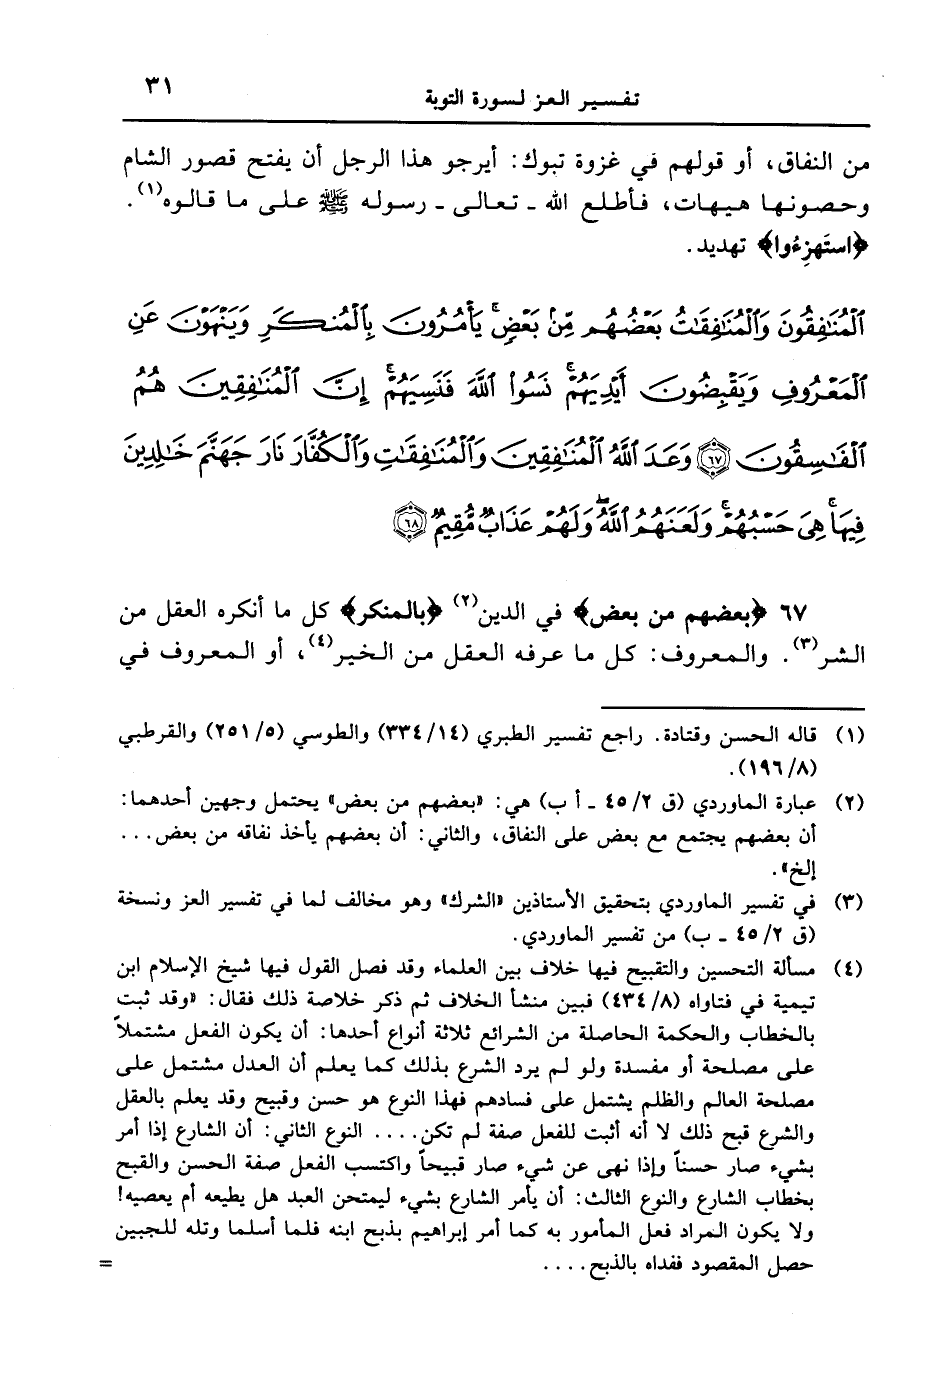 تفسير العز لسورة التوبة ٣١
من النفاق، أو قولهم في غزوة تبوك: أيرجو هذا الرجل أن يفتح قصور الشام
وحصونها هيهات، فأطلع الله ـ تعالى ـ رسوله ﷺ على ما قالوه(١).
﴿استَهزِءُوا﴾ تهديد.
ٱلْمُنَٰفِقُونَ وَٱلْمُنَٰفِقَٰتُ بَعْضُهُم مِّنۢ بَعْضٍۚ يَأْمُرُونَ بِٱلْمُنكَرِ وَيَنْهَوْنَ عَنِ
ٱلْمَعْرُوفِ وَيَقْبِضُونَ أَيْدِيَهُمْۚ نَسُوا۟ ٱللَّهَ فَنَسِيَهُمْۚ إِنَّ ٱلْمُنَٰفِقِينَ هُمُ
ٱلْفَٰسِقُونَ ۝٦٧ وَعَدَ ٱللَّهُ ٱلْمُنَٰفِقِينَ وَٱلْمُنَٰفِقَٰتِ وَٱلْكُفَّارَ نَارَ جَهَنَّمَ خَٰلِدِينَ
فِيهَاۚ هِىَ حَسْبُهُمْۚ وَلَعَنَهُمُ ٱللَّهُۖ وَلَهُمْ عَذَابٌ مُّقِيمٌ ۝٦٨
٦٧ ﴿بعضهم من بعض﴾ في الدين(٢) ﴿بالمنكر﴾ كل ما أنكره العقل من
الشر(٣). والمعروف: كل ما عرفه العقل من الخير(٤)، أو المعروف في
(١) قاله الحسن وقتادة. راجع تفسير الطبري (١٤/ ٣٣٤) والطوسي (٥/ ٢٥١) والقرطبي
(٨/ ١٩٦).
(٢) عبارة الماوردي (ق ٢/ ٤٥ ـ أ ب) هي: «بعضهم من بعض» يحتمل وجهين أحدهما:
أن بعضهم يجتمع مع بعض على النفاق، والثاني: أن بعضهم يأخذ نفاقه من بعض...
إلخ».
(٣) في تفسير الماوردي بتحقيق الأستاذين «الشرك» وهو مخالف لما في تفسير العز ونسخة
(ق ٢/ ٤٥ ـ ب) من تفسير الماوردي.
(٤) مسألة التحسين والتقبيح فيها خلاف بين العلماء وقد فصل القول فيها شيخ الإسلام ابن
تيمية في فتاواه (٨/ ٤٣٤) فبين منشأ الخلاف ثم ذكر خلاصة ذلك فقال: «وقد ثبت
بالخطاب والحكمة الحاصلة من الشرائع ثلاثة أنواع أحدها: أن يكون الفعل مشتملاً
على مصلحة أو مفسدة ولو لم يرد الشرع بذلك كما يعلم أن العدل مشتمل على
مصلحة العالم والظلم يشتمل على فسادهم فهذا النوع هو حسن وقبيح وقد يعلم بالعقل
والشرع قبح ذلك لا أنه أثبت للفعل صفة لم تكن.... النوع الثاني: أن الشارع إذا أمر
بشيء صار حسناً وإذا نهى عن شيء صار قبيحاً واكتسب الفعل صفة الحسن والقبح
بخطاب الشارع والنوع الثالث: أن يأمر الشارع بشيء ليمتحن العبد هل يطيعه أم يعصيه!
ولا يكون المراد فعل المأمور به كما أمر إبراهيم بذبح ابنه فلما أسلما وتله للجبين
حصل المقصود ففداه بالذبح.... =